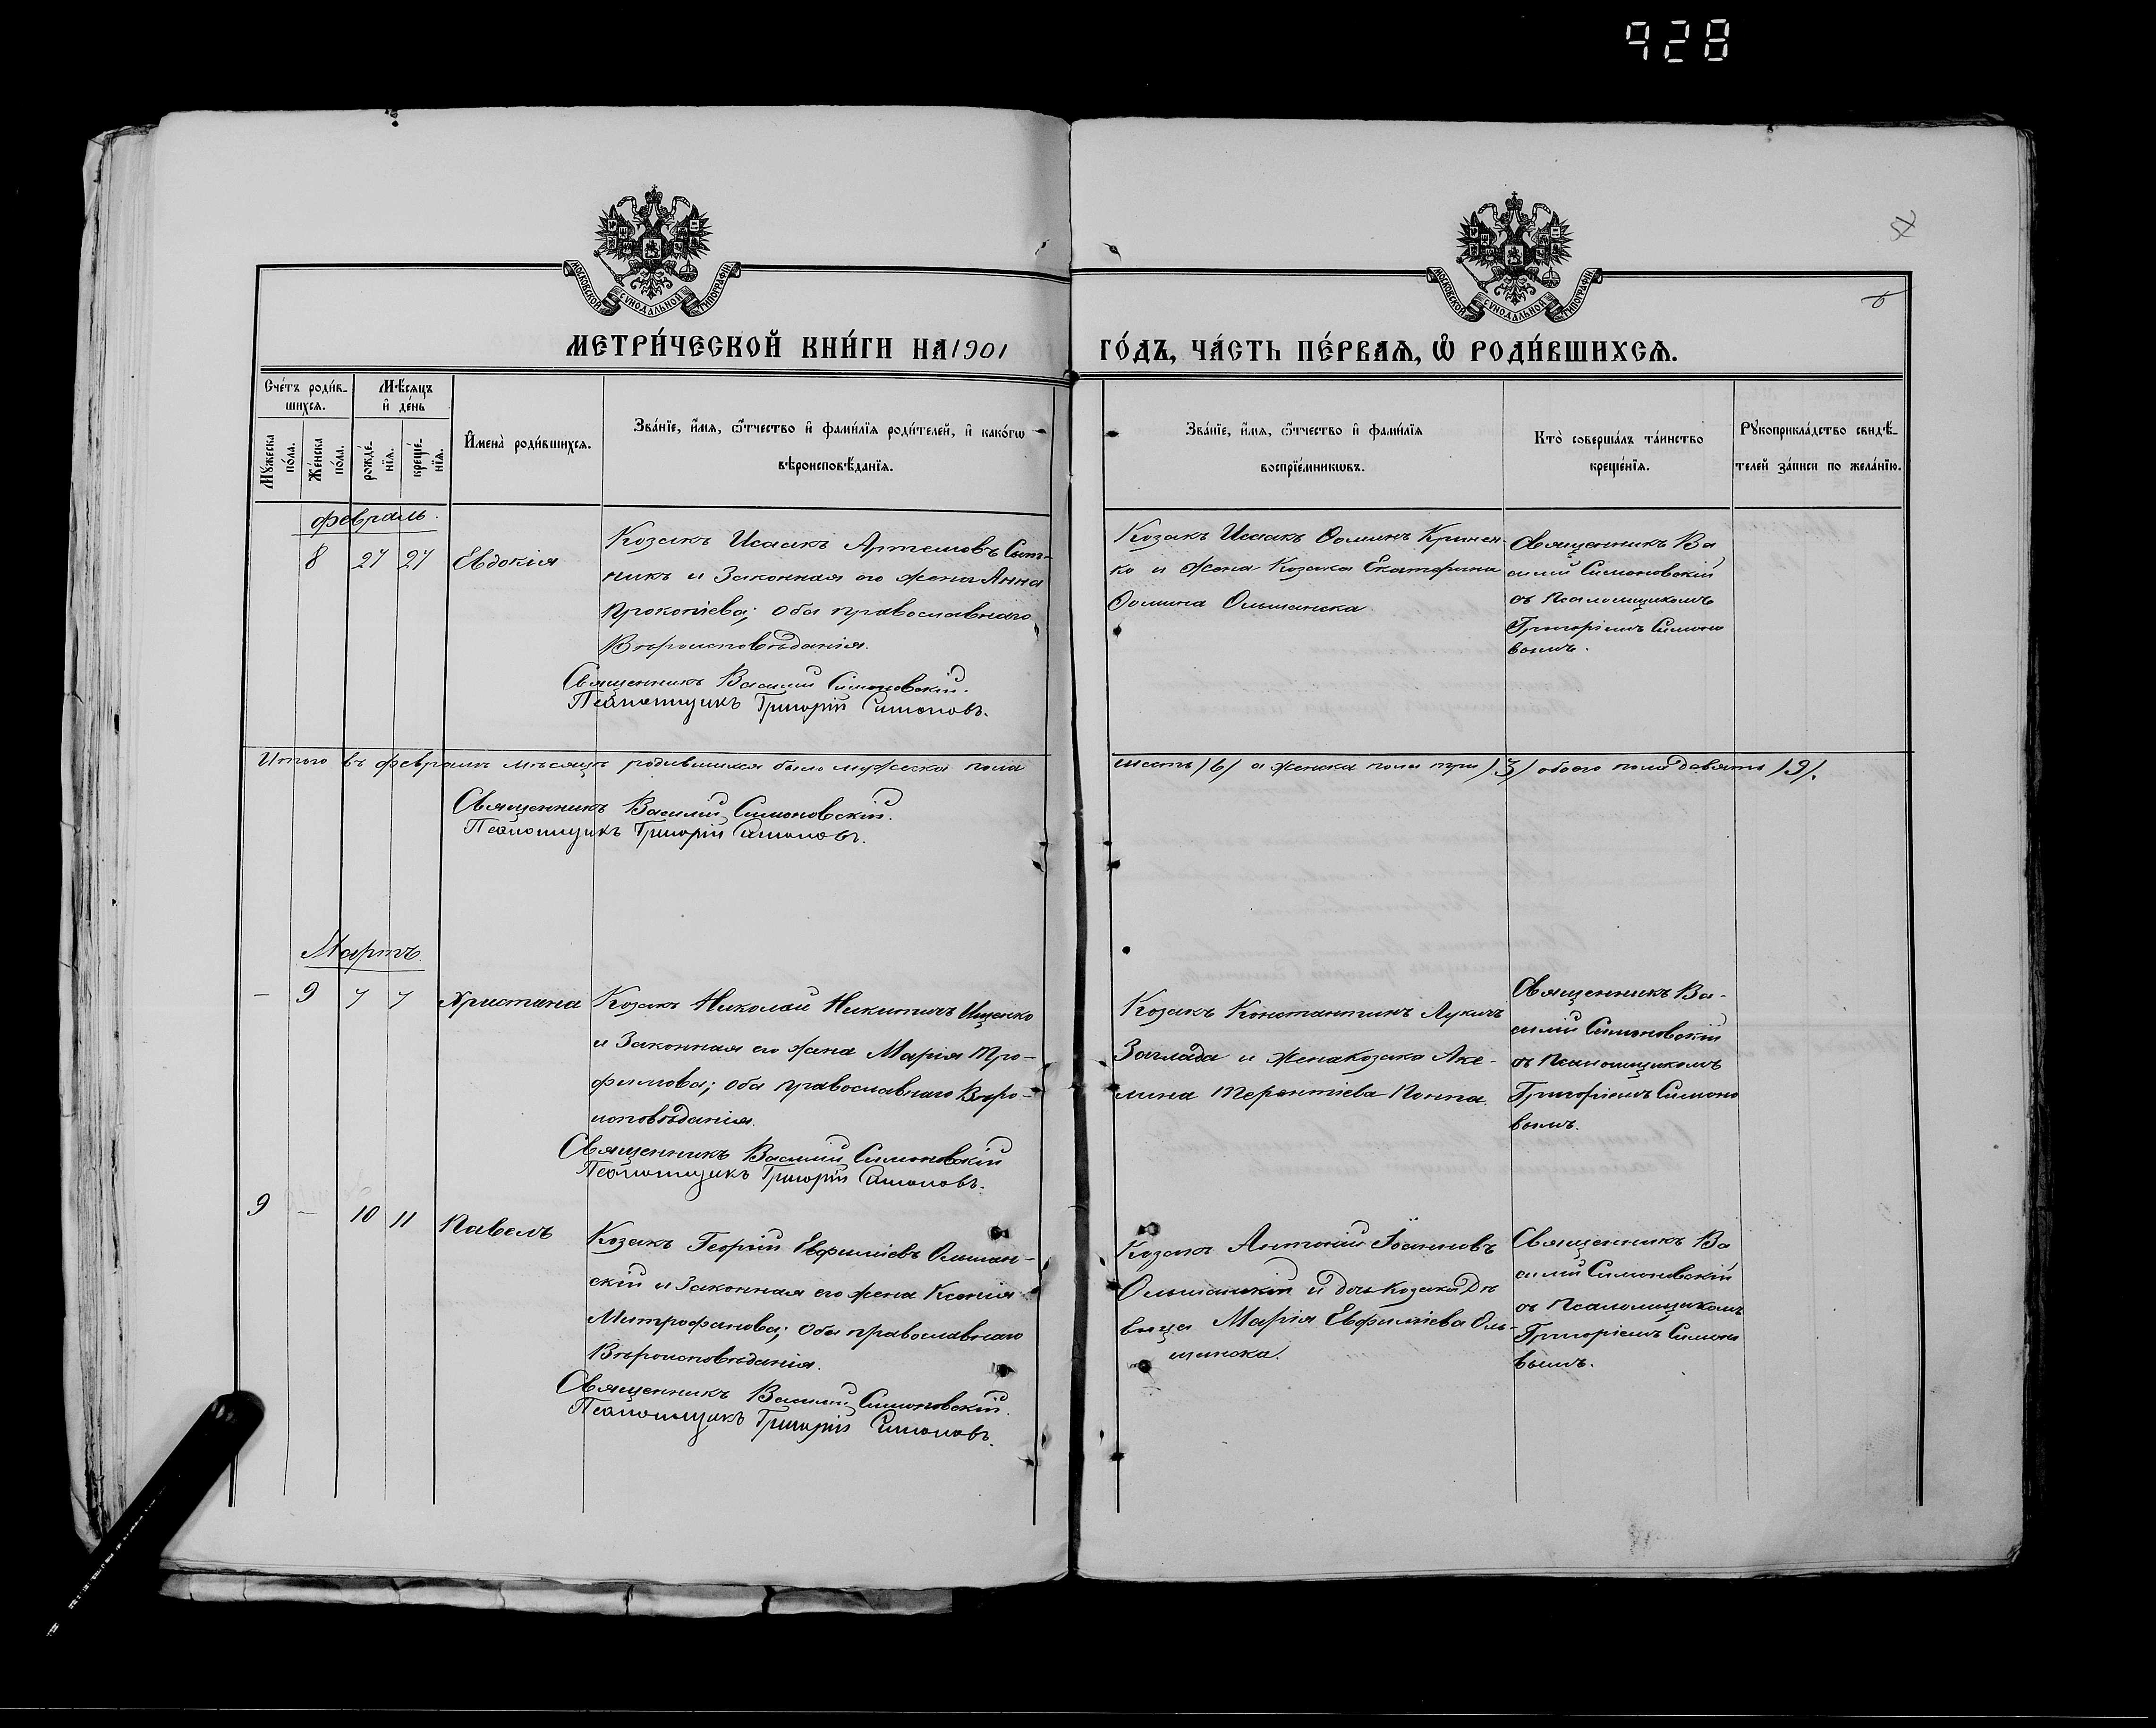 928
МОСКОВСКОЙ СУНОДАЛЬНОЙ ТИПОГРАФІИ
МОСКОВСКОЙ СУНОДАЛЬНОЙ ТИПОГРАФІИ
МЕТРИ́ЧЕСКОЙ КНИ́ГИ НА 1901
ГО́ДЪ, ЧА́СТЬ ПЕ́РВАѦ, Ѡ҆ РОДИ́ВШИХСѦ.
Сче́тъ роди́в-
шихсѧ.
Мѣ́сѧцъ
и҆ де́нь
Мꙋ́жеска
по́ла.
Же́нска
по́ла.
рожде́-
нїѧ.
креще́-
нїѧ.
И҆мена̀ роди́вшихсѧ.
Зва́нїе, и҆́мѧ, ѻ҆́тчество и҆ фами́лїѧ роди́телей, и҆ како́гѡ
вѣроисповѣ́данїѧ.
Зва́нїе, и҆́мѧ, ѻ҆́тчество и҆ фами́лїѧ
воспрїе́мникѡвъ.
Кто̀ соверша́лъ та́инство
креще́нїѧ.
Рꙋкоприкла́дство свидѣ́-
телей за́писи по жела́нїю.
февраль.
8 27 27 Евдокія
Козакъ Исаакъ Артемовъ Сыт-
никъ и Законная его жена Анна
Прокопіева; оба православнаго
Вѣроисповѣданія.
Священникъ Василій Симоновскій.
Псаломщикъ Григорій Симоновъ.
Козакъ Исаакъ Ѳоминъ Кринен-
ко и жена Козака Екатерина
Ѳомина Ольшанска.
Священникъ Ва
силій Симоновскій
съ Псаломщикомъ
Григоріемъ Симоно
вымъ.
Итого въ февралѣ мѣсяцѣ родившихся было мужеска пола
шесть /6/ а женска пола три /3/ обоего пола девять /9/.
Священникъ Василій Симоновскій.
Псаломщикъ Григорій Симоновъ.
Мартъ.
– 9 7 7 Христина
Козакъ Николай Никитичъ Ищенко
и Законная его жена Марія Тро-
фимова; оба православнаго Вѣро-
исповѣданія.
Священникъ Василій Симоновскій
Псаломщикъ Григорій Симоновъ.
Козакъ Константинъ Лукичъ
Заглада и жена Козака Аке-
лина Терентіева Поппа.
Священникъ Ва-
силій Симоновскій
съ Псаломщикомъ
Григоріемъ Симоно
вымъ.
9 – 10 11 Павелъ
Козакъ Георгій Евфиміевъ Ольшан-
скій и Законная его жена Ксенія
Митрофанова; оба православнаго
Вѣроисповѣданія.
Священникъ Василій Симоновскій.
Псаломщикъ Григорій Симоновъ.
Козакъ Антоній Іоанновъ
Ольшанскій и дочь Козака Дѣ
вица Марія Евфиміева Оль-
шанска.
Священникъ Ва
силій Симоновскій
съ Псаломщикомъ
Григоріемъ Симоно
вымъ.